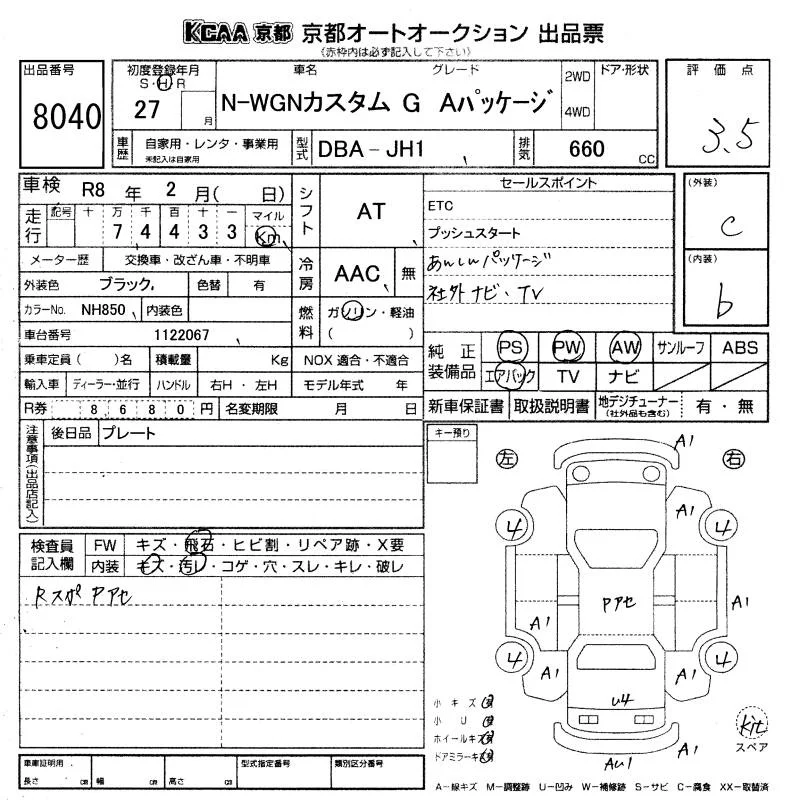 KCAA 京都 京都オートオークション 出品票
(赤枠内は必ず記入して下さい)
出品番号
8040
初度登録年月
S・H・R
27 月
車名 グレード
N-WGNカスタム G Aパッケージ
2WD
4WD
ドア・形状
評価点
3.5
車歴
自家用・レンタ・事業用
未記入は自家用
型式
DBA-JH1
排気
660 CC
車検 R8 年 2 月( 日)
走行
記号 十 万 千 百 十 一 マイル
7 4 4 3 3 Km
メーター歴 交換車・改ざん車・不明車
外装色 ブラック 色替 有
カラーNo. NH850 内装色
車台番号 1122067
乗車定員( )名 積載量 Kg
輸入車 ディーラー・並行 ハンドル 右H・左H
R券 8 6 8 0 円 名変期限 月 日
シフト
AT
冷房
AAC 無
燃料
ガソリン・軽油
( )
NOX 適合・不適合
モデル年式 年
セールスポイント
ETC
プッシュスタート
あんしんパッケージ
社外ナビ・TV
(外装)
C
(内装)
b
純正装備品
PS PW AW サンルーフ ABS
エアバック TV ナビ
新車保証書 取扱説明書 地デジチューナー(社外品も含む) 有・無
注意事項(出品店記入)
後日品 プレート
キー預り
検査員記入欄
FW キズ・飛石・ヒビ割・リペア跡・X要
内装 キズ・汚レ・コゲ・穴・スレ・キレ・破レ
Rスポ Pアセ
左 右
A1
A1
4 4
Pアセ
A1 A1
4 4
A1 A1
U4
AU1 A1
小キズ 有
小U 有
ホイールキズ 有
ドアミラーキズ 有
kit
スペア
車庫証明用
長さ cm 幅 cm 高さ cm
型式指定番号
類別区分番号
A-線キズ M-調整跡 U-凹み W-補修跡 S-サビ C-腐食 XX-取替済